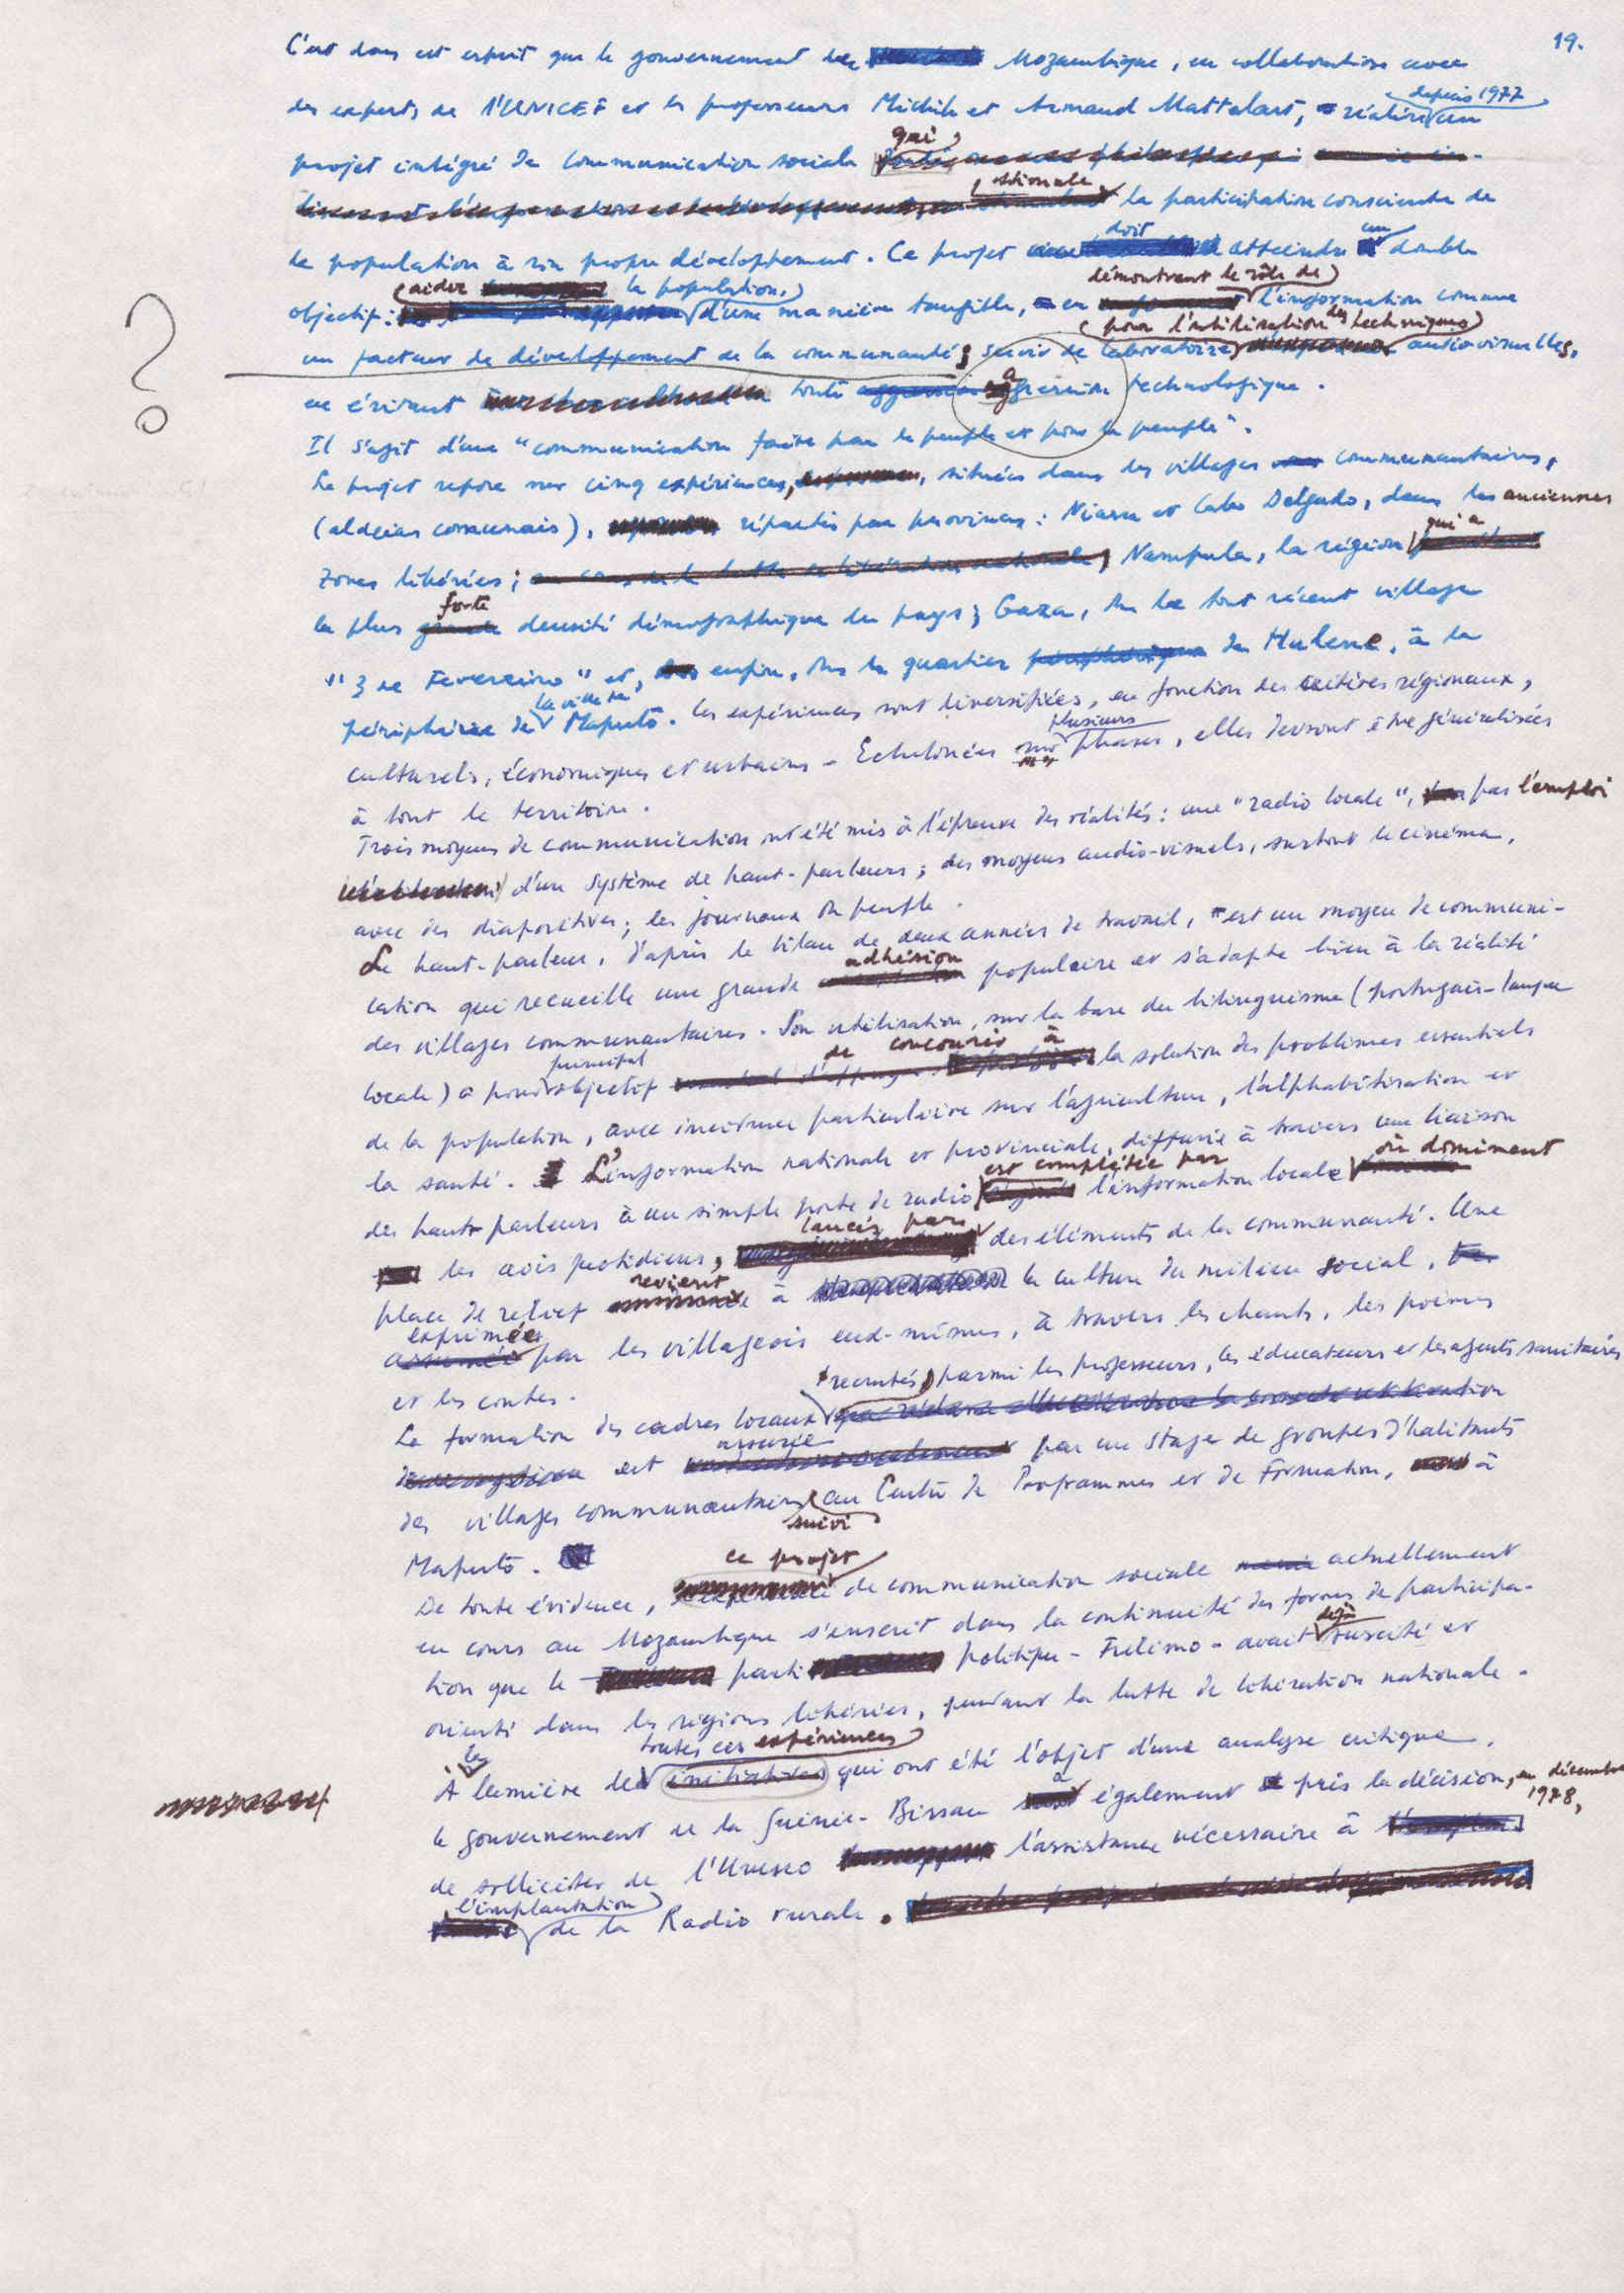 19.
C'est dans cet esprit que le gouvernement du Mozambique, en collaboration avec
des experts de l'UNICEF et les professeurs Michèle et Armand Mattelart, réalise depuis 1977 un
projet intégré de communication sociale qui
stimule la participation consciente de
la population à son propre développement. Ce projet doit atteindre un double
objectif: aider la population, d'une manière tangible, en démontrant le rôle de l'information comme
un facteur de développement de la communauté; servir de laboratoire pour l'utilisation des techniques audio-visuelles,
en évitant toute agression technologique.
Il s'agit d'une "communication faite par le peuple et pour le peuple".
Le projet repose sur cinq expériences, situées dans des villages communautaires,
(aldeias comunais), répartis par provinces: Niassa et Cabo Delgado, dans les anciennes
zones libérées; Nampula, la région qui a
la plus forte densité démographique du pays; Gaza, dans le tout récent village
"3 de Fevereiro" et, enfin, dans le quartier de Hulene, à la
périphérie de la ville de Maputo. Ces expériences sont diversifiées, en fonction des critères régionaux,
culturels, économiques et urbains - Echelonées sur plusieurs phases, elles devront être généralisées
à tout le territoire.
Trois moyens de communication ont été mis à l'épreuve des réalités: une "radio locale", par l'emploi
d'un système de haut-parleurs; des moyens audio-visuels, surtout le cinéma,
avec des diapositives; les journaux du peuple.
Le haut-parleur, d'après le bilan de deux années de travail, est un moyen de communi-
cation qui recueille une grande adhésion populaire et s'adapte bien à la réalité
des villages communautaires. Son utilisation, sur la base du bilinguisme (portugais-langue
locale) a pour principal objectif de concourir à la solution des problèmes essentiels
de la population, avec incidence particulière sur l'agriculture, l'alphabétisation et
la santé. L'information nationale et provinciale, diffusée à travers une liaison
des haut parleurs à un simple poste de radio est complétée par l'information locale où dominent
les avis quotidiens, lancés par des éléments de la communauté. Une
place de relief revient à la culture du milieu social,
exprimée par les villageois eux-mêmes, à travers les chants, les poèmes
et les contes.
La formation des cadres locaux recrutés parmi les professeurs, les éducateurs et les agents sanitaires
est assurée par un stage de groupes d'habitants
des villages communautaires suivi au Centre de Programmes et de Formation, à
Maputo.
De toute évidence, ce projet de communication sociale actuellement
en cours au Mozambique s'inscrit dans la continuité des formes de participa-
tion que le parti politique - Frelimo - avait déjà suscité et
orienté dans les régions libérées, pendant la lutte de libération nationale.
À la lumière de toutes ces expériences qui ont été l'objet d'une analyse critique,
le gouvernement de la Guinée-Bissau a également pris la décision, en décembre 1978,
de solliciter de l'Unesco l'assistance nécessaire à
l'implantation de la Radio rurale.
?